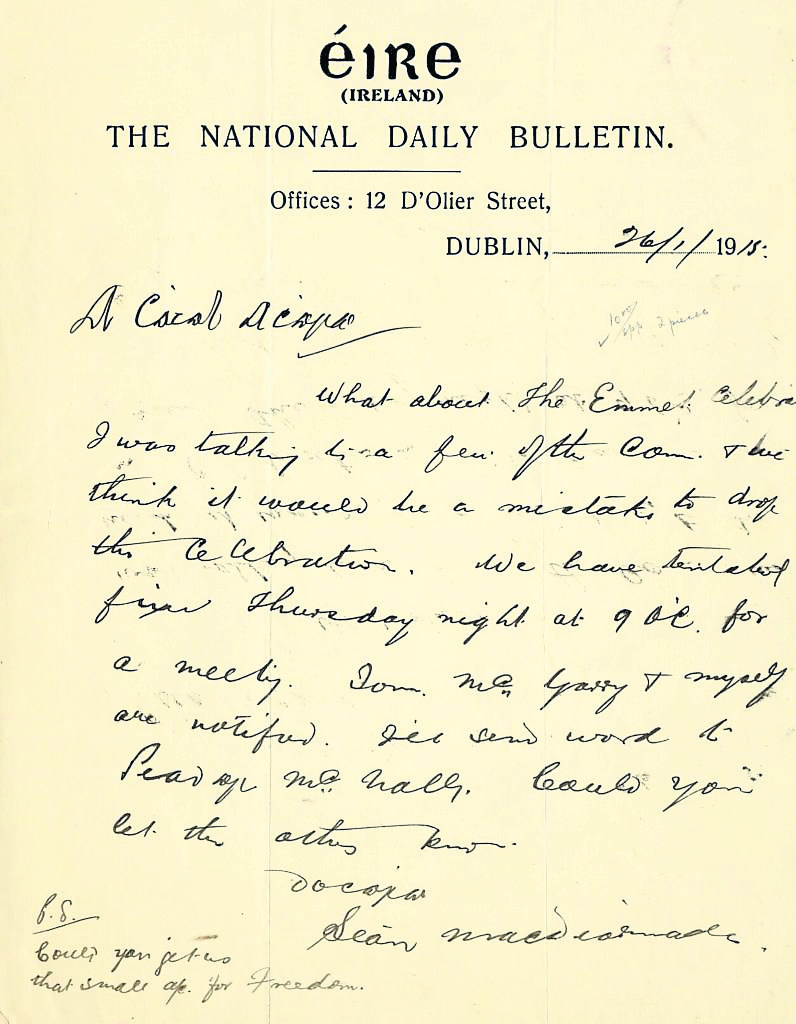 éire
(IRELAND)
THE NATIONAL DAILY BULLETIN.
Offices: 12 D'Olier Street,
DUBLIN, 26/1/1915.
A Cara
What about the Emmet Celebra
I was talking to a few of the Com. & we
think it would be a mistake to drop
the Celebration. We have
Thursday night at 9 O'C. for
a meeting. Tom, McGarry & myself
are notified. I'll send word to
McNally. Could you
let the others know.
Do
Seán MacDiarmada.
P.S.
Could you get us
that small a/c. for Freedom.